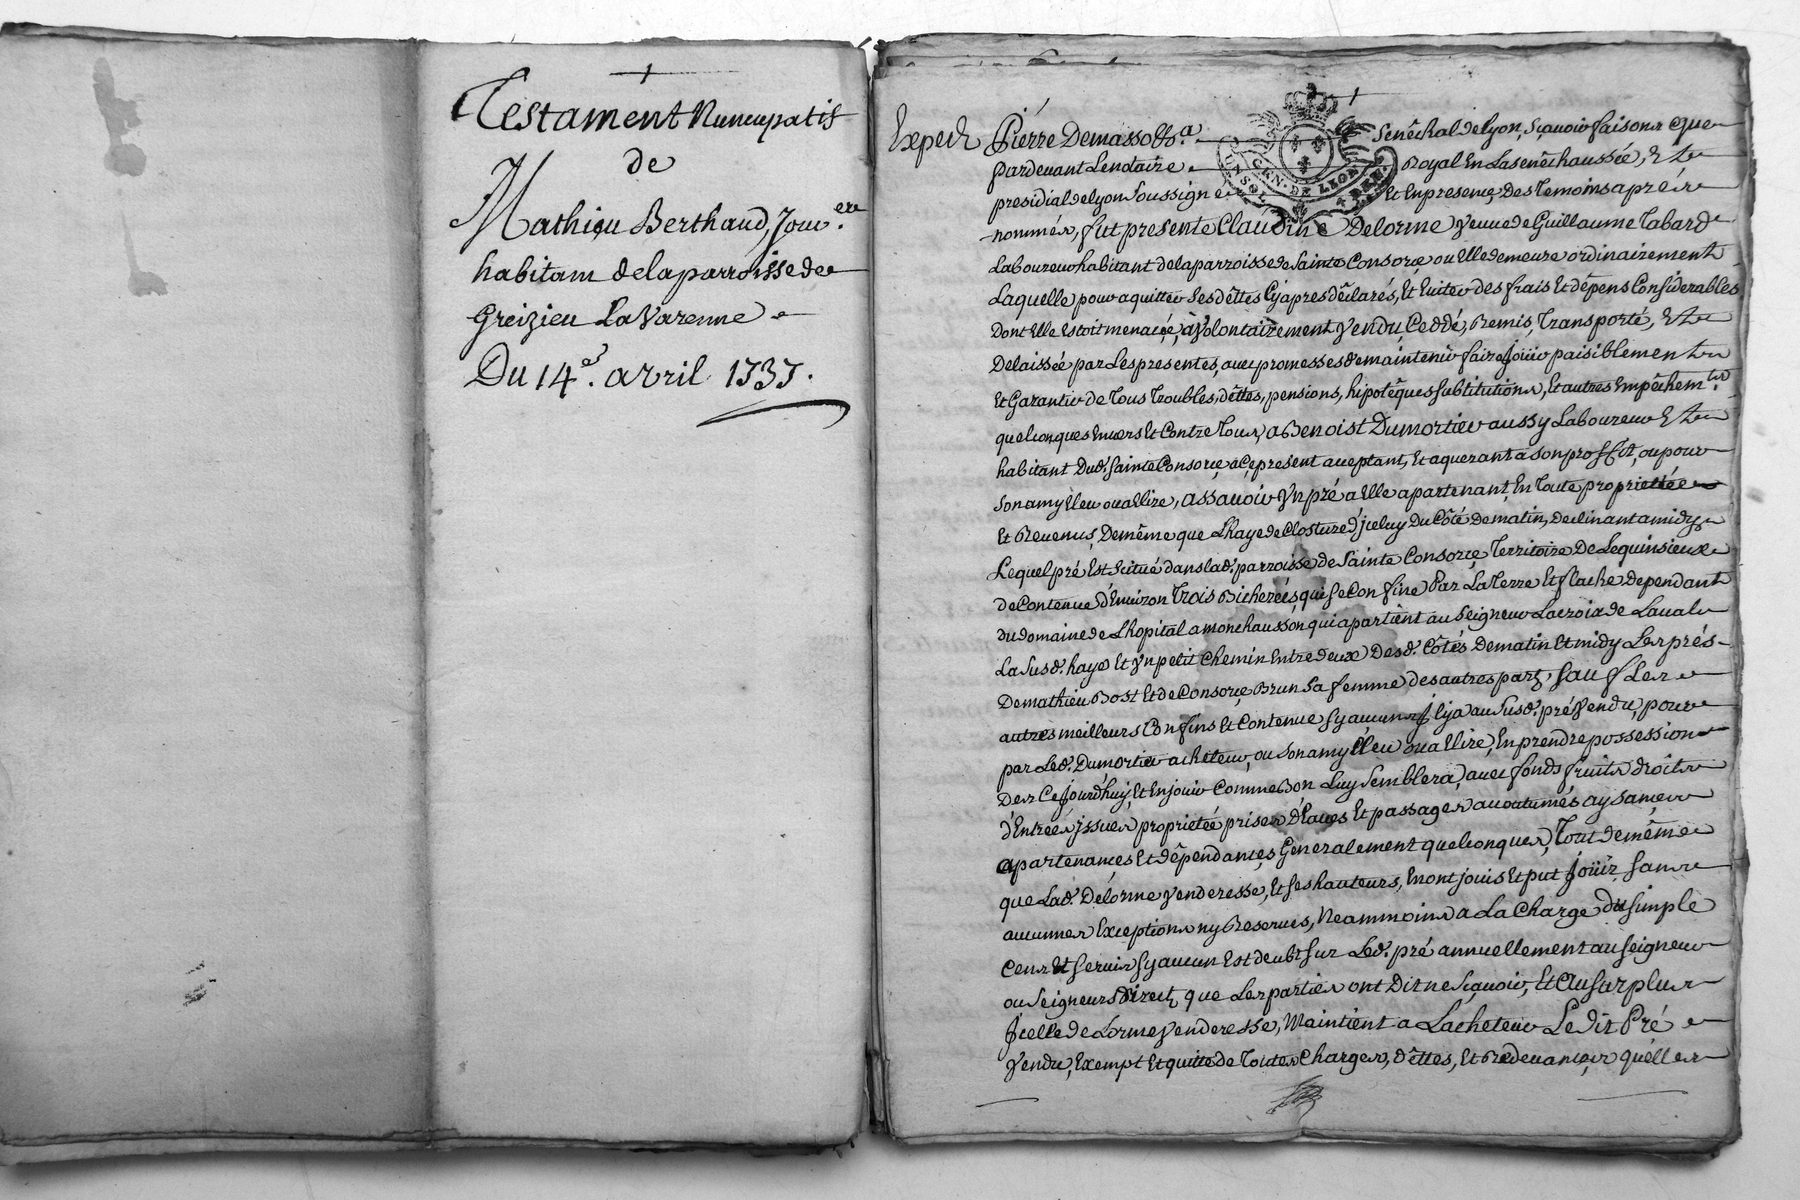 Testament Nuncupatif
de
Mathieu Berthaud, Jour.ere
habitant de la parroisse de
Greizieu La Varenne
Du 14e. avril 1737.
Exped
Pierre Demasso &a. Senêchal de Lyon, Sçavoir faisons que
pardevant Le notaire Royal En La senêchaussée, Et
presidial de Lyon Soussigné Et En presence Des Temoins aprés
GEN. DE LION
nommés, fut presente Claudine Delorme Veuve de Guillaume Tabard
Laboureur habitant de la parroisse de Sainte Consorce ou Elle demeure ordinairement
Laquelle pour aquitter Ses dêttes Cy apres déclarés, Et Eviter des frais Et dépens Considerables
Dont Elle Estoit menacée, à Volontairement Vendu, Ceddé, Remis, Transporté, Et
Delaissée par Les presentes, avec promesses de maintenir faire Joüir paisiblement
Et Garantir de Tous Troubles, dêttes, pensions, hipotêques, substitutions, Et autres Empêchemts
quelconques Envers Et Contre Tous, a Benoist Dumortier aussy Laboureur Et
habitant Dud. Sainte Consorce, a Ce present acceptant, Et aquerant a son proffit, ou pour
Son amy Eleu ou a Elire, assavoir Un pré a Elle apartenant En Toute proprietée
Et Revenus, De même que L'haye de Closture d'Iceluy Du Côté De matin, Declinant a midy
Lequel pré Est Scitué dans lad. parroisse de Sainte Consorce Territoire De Lequinsieux
de Contenue d'Environ Trois Bicherées, qui se Confine Par La Terre Et flache dependant
du domaine de L'hopital a monchausson qui apartient au Seigneur Lacroix de Laval
La Susd. haye Et Un petit Chemin Entre deux Desd. Côtés De matin Et midy Les prés
De mathieu Bost Et de Consorce Brun Sa femme des autres parts, Sauf Les
autres meilleurs Confins Et Contenue Sy aucuns Il y a au Susd. pré Vendu, pour
par Led. Dumortier acheteur, ou Son amy Eleu ou a Elire, En prendre possession
Des Ce Jourd'huy, Et En jouir Comme Bon Luy Semblera, avec fonds fruits droits
d'Entrées, issues, proprietée prises d'Eaues Et passages accoutumés aysances
apartenances Et dépendances Generalement quelconques, Tout de même
que Lad. Delorme Venderesse, Et ses hauteurs, En ont jouis Et put Joüir, Sans
aucunes Exceptions ny Reserves, Neammoins a La Charge du Simple
Cens Et Servis Sy aucun Est deubt sur Led. pré annuellement au Seigneur
ou Seigneurs direct, que Les parties ont Dit ne Sçavoir, Et au Surplus
Icelle de Lorme Venderesse, Maintient a L'acheteur Le Dit Pré
Vendu, Exempt Et quitte de Toutes Charges, dêttes, Et Redevances quelles